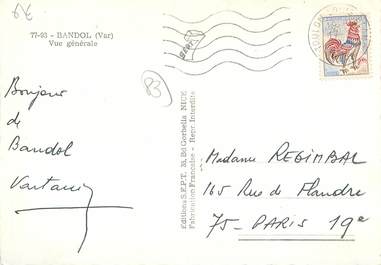 6€
77-93 - BANDOL (Var)
Vue générale
83
Bonjour
de
Bandol
Vartanig
Editions S.E.P.T. 30, Bd Gorbella NICE
Fabrication Française - Repr. Interdite
TOULON
Madame REGIMBAL
165 Rue de Flandre
75 - PARIS 19e